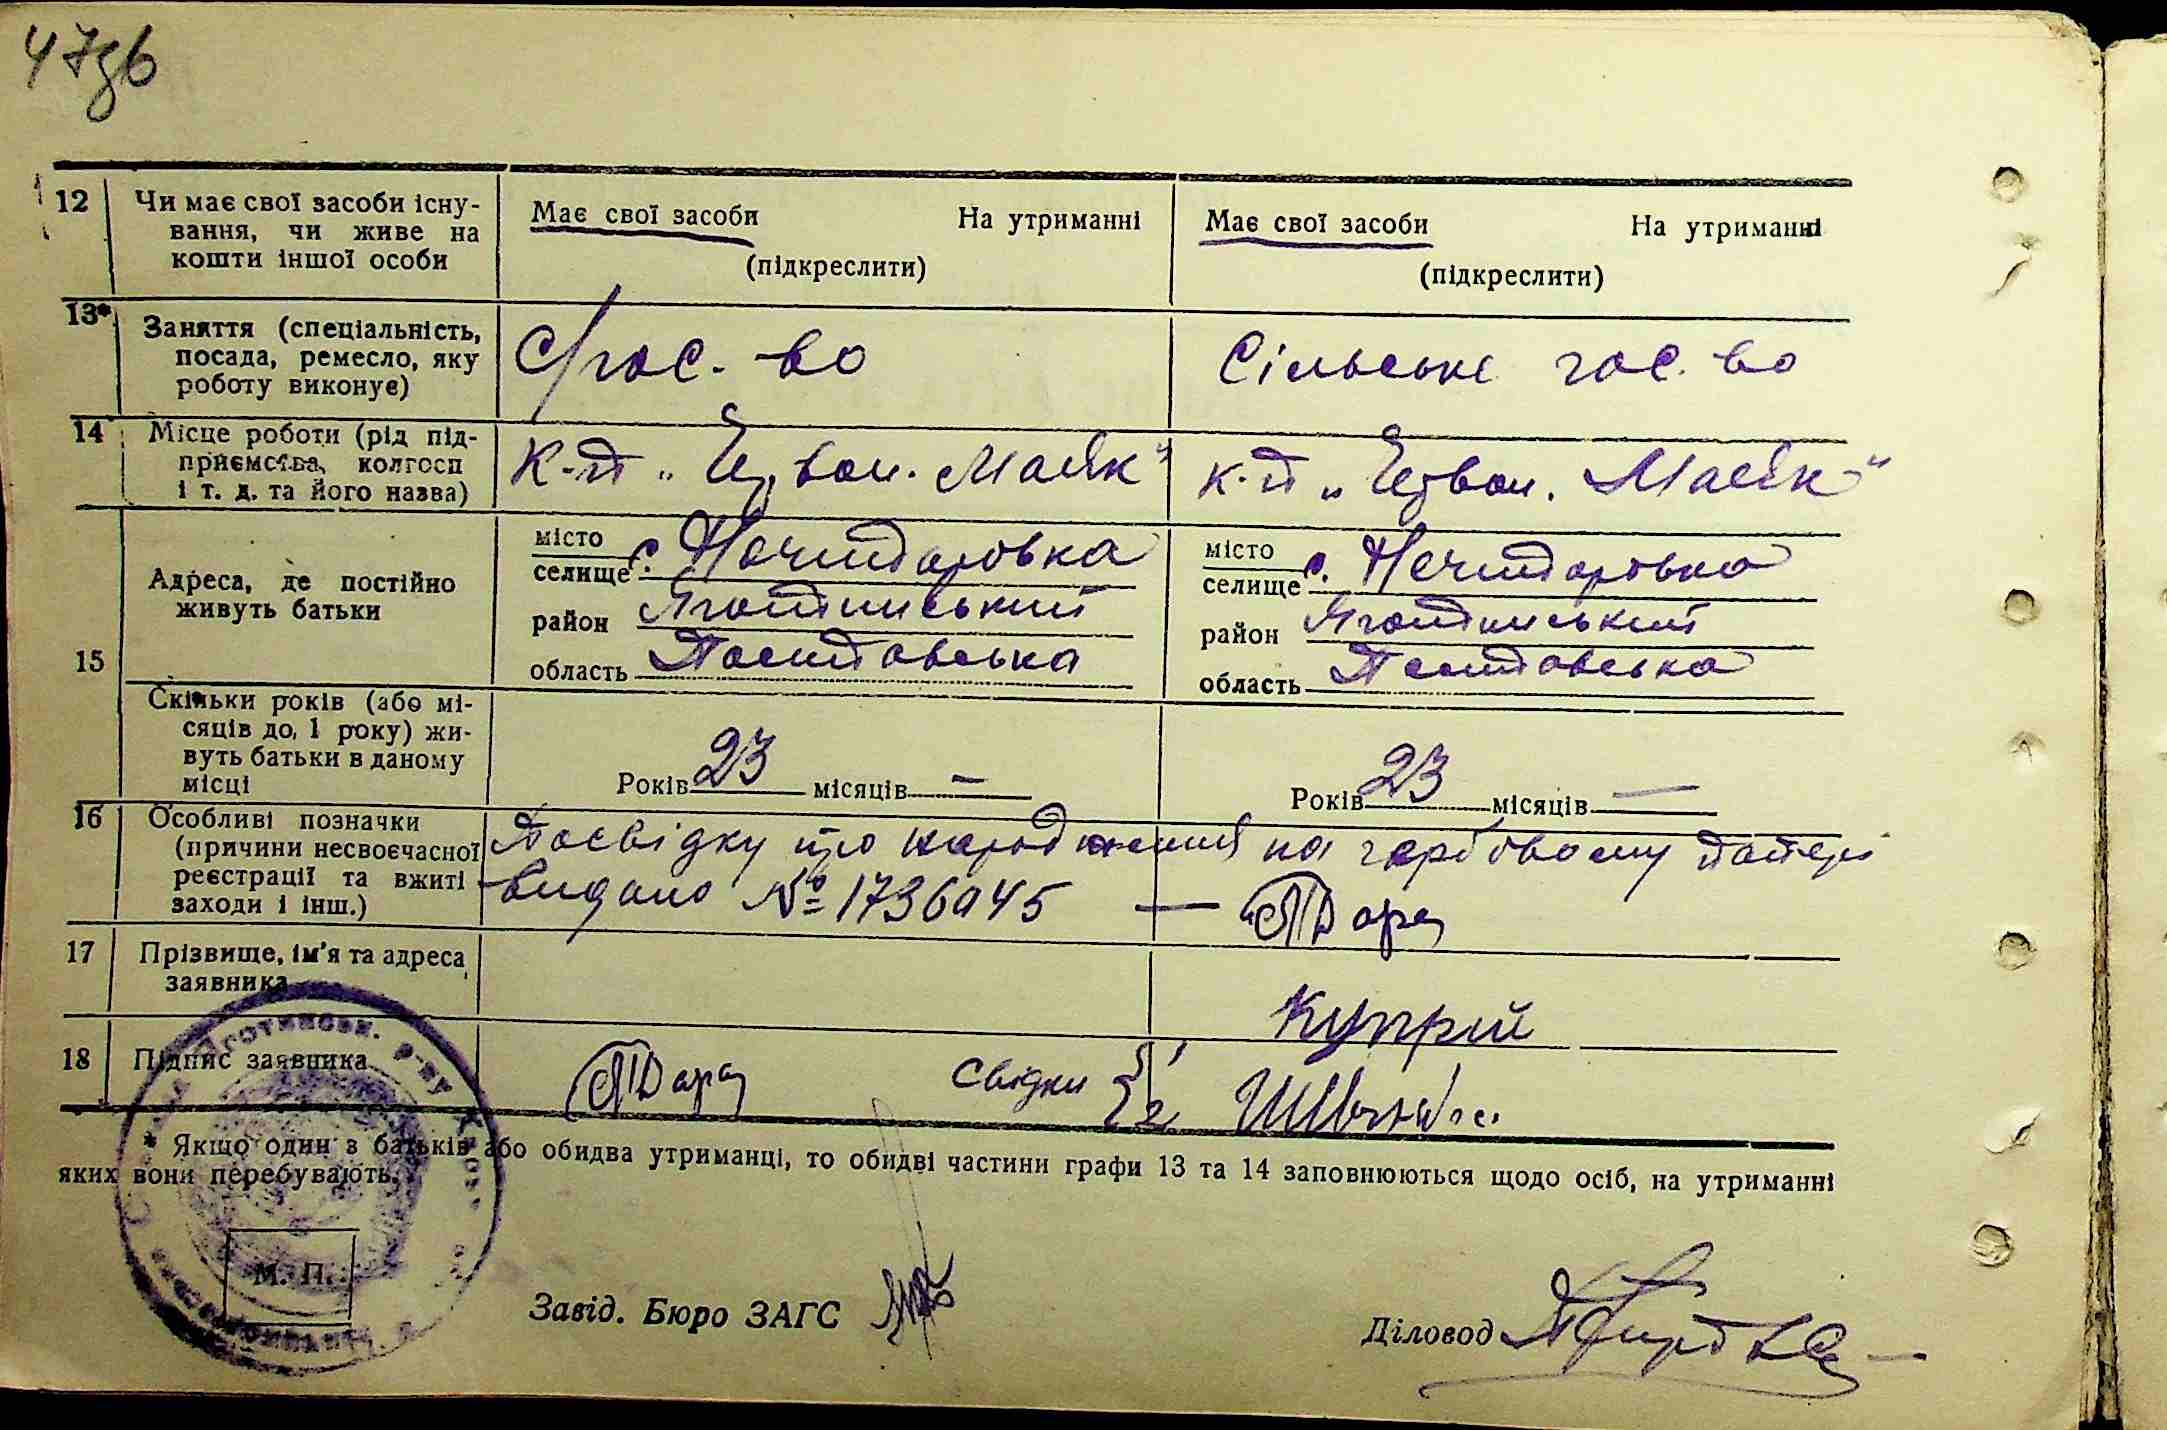 47зв
12 Чи має свої засоби існу- Має свої засоби На утриманні Має свої засоби На утриманні
вання, чи живе на
кошти іншої особи (підкреслити) (підкреслити)
13* Заняття (спеціальність,
посада, ремесло, яку С/гос.-во Сільське гос. во
роботу виконує)
14 Місце роботи (рід під-
приємства, колгосп К-п „Червон. Маяк" К-п „Червон. Маяк"
і т. д. та його назва)
15 Адреса, де постійно місто селище с. Нечипоровка місто селище с. Нечипоровка
живуть батьки район Яготинський район Яготинський
область Полтавська область Полтавська
Скільки років (або мі-
сяців до, 1 року) жи-
вуть батьки в даному
місці Років 23 місяців — Років 23 місяців —
16 Особливі позначки Посвідку про народження на гербовому папері
(причини несвоєчасної
реєстрації та вжиті видано № 1736945 —
заходи і інш.)
17 Прізвище, ім'я та адреса
заявника
Купрій
18 Підпис заявника Свідки 2
* Якщо один з батьків або обидва утриманці, то обидві частини графи 13 та 14 заповнюються щодо осіб, на утриманні
яких вони перебувають.
М. П.
Завід. Бюро ЗАГС Діловод